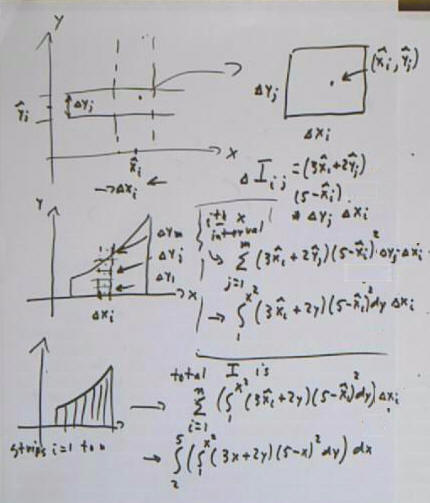 Y
ŷj
Δyj
x̂i
X
→Δxi←
(x̂i, ŷj)
Δyj
Δxi
ΔIi,j = (3x̂i+2ŷj)
(5-x̂i)
* Δyj Δxi
Y
Δym
Δyj
Δy1
X
Δxi
ith x
interval
→ Σ j=1 m (3x̂i+2ŷj)(5-x̂i)²·Δyj·Δxi
→ ∫ 1 x² (3x̂i+2y)(5-x̂i)²dy Δxi
strips i=1 to n
total I is
→ Σ i=1 n (∫ 1 x² (3x̂i+2y)(5-x̂i)²dy)Δxi
→ ∫ 2 5 (∫ 1 x² (3x+2y)(5-x)²dy) dx